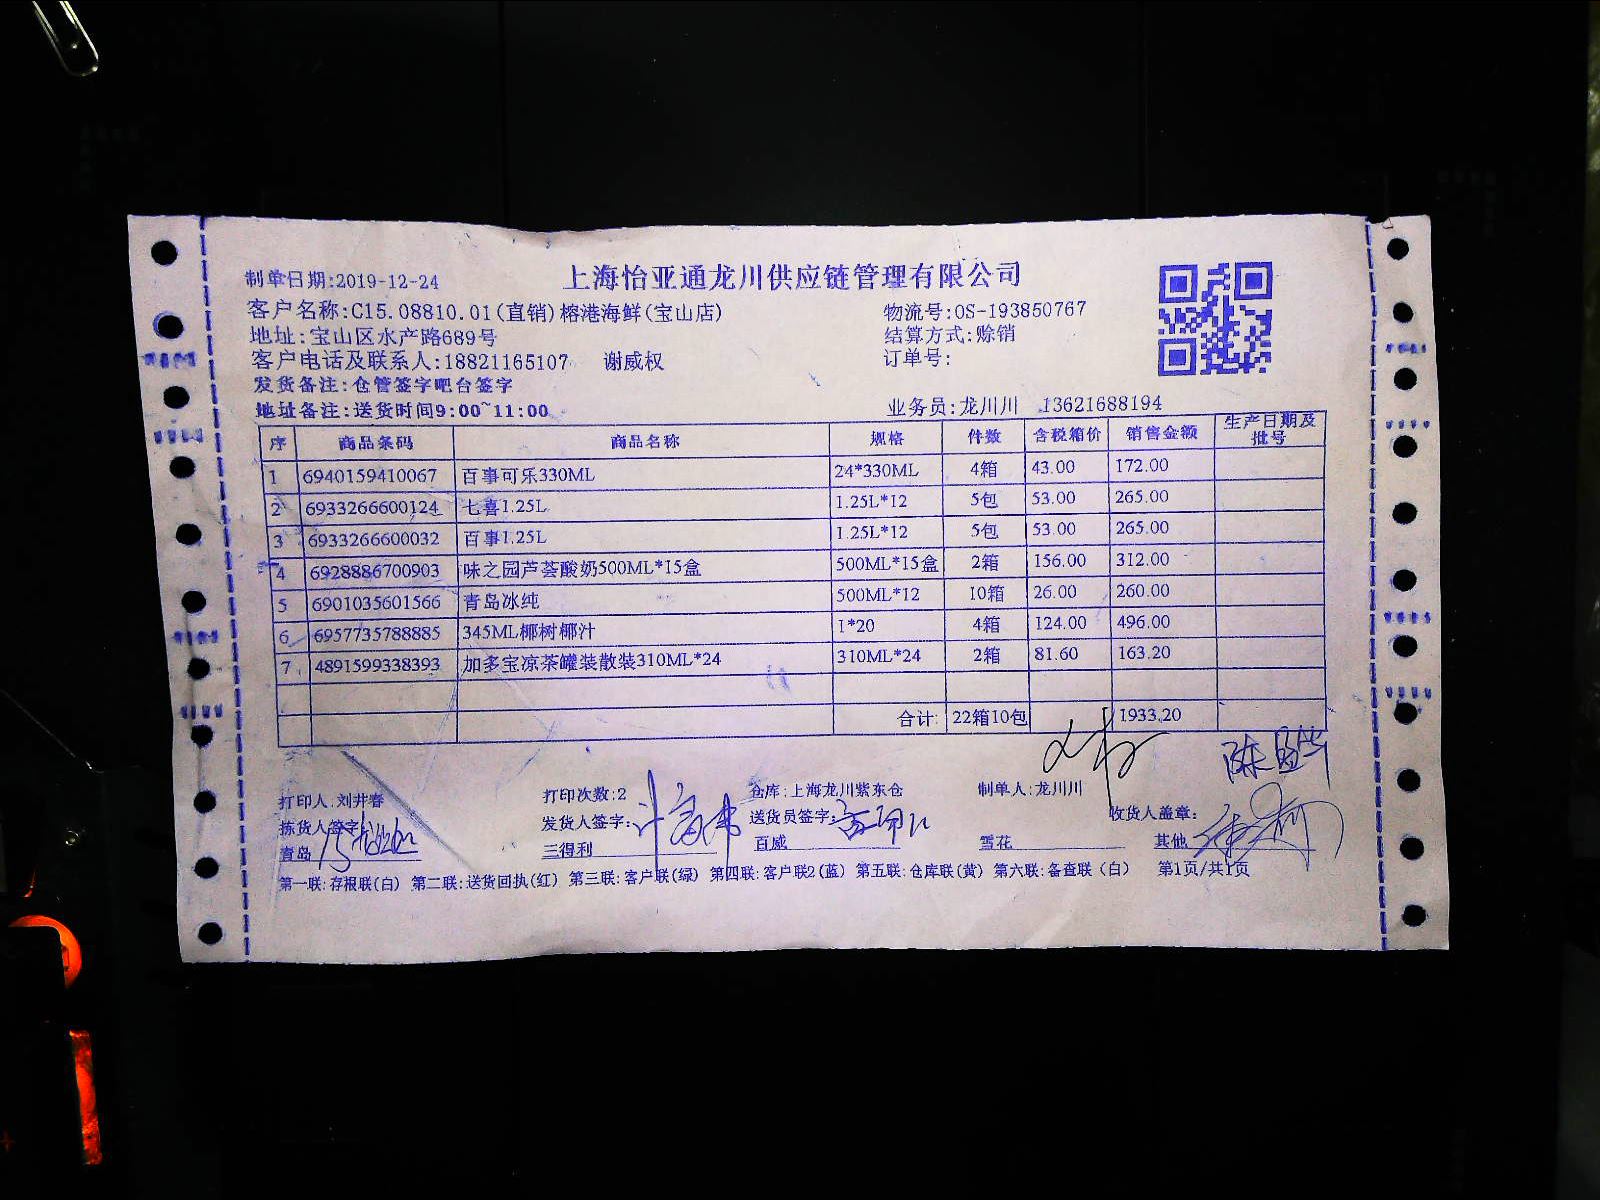 上海怡亚通龙川供应链管理有限公司
制单日期:2019-12-24
客户名称:C15.08810.01(直销)榕港海鲜(宝山店) 物流号:OS-193850767
地址:宝山区水产路689号 结算方式:赊销
客户电话及联系人:18821165107 谢威权 订单号:
发货备注:仓管签字吧台签字
地址备注:送货时间9:00~11:00 业务员:龙川川 13621688194
序 商品条码 商品名称 规格 件数 含税箱价 销售金额 生产日期及批号
1 6940159410067 百事可乐330ML 24*330ML 4箱 43.00 172.00
2 6933266600124 七喜1.25L 1.25L*12 5包 53.00 265.00
3 6933266600032 百事1.25L 1.25L*12 5包 53.00 265.00
4 6928886700903 味之园芦荟酸奶500ML*15盒 500ML*15盒 2箱 156.00 312.00
5 6901035601566 青岛冰纯 500ML*12 10箱 26.00 260.00
6 6957735788885 345ML椰树椰汁 1*20 4箱 124.00 496.00
7 4891599338393 加多宝凉茶罐装散装310ML*24 310ML*24 2箱 81.60 163.20
合计: 22箱10包 1933.20
打印人:刘井春 打印次数:2 仓库:上海龙川紫东仓 制单人:龙川川
拣货人签字: 发货人签字: 送货员签字: 收货人盖章:
青岛 三得利 百威 雪花 其他
第一联:存根联(白) 第二联:送货回执(红) 第三联:客户联(绿) 第四联:客户联2(蓝) 第五联:仓库联(黄) 第六联:备查联(白) 第1页/共1页